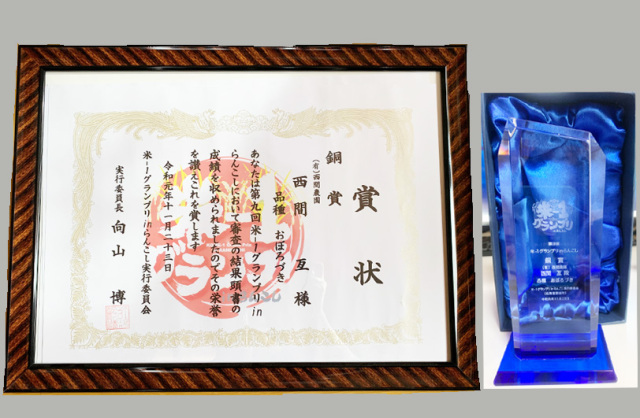 賞状
銅賞
(有)西間農園
西間 亙 様
品種 おぼろづき
あなたは第九回 米-1グランプリin
らんこしにおいて審査の結果頭書の
成績を収められましたのでその栄誉
を讃えこれを賞します
令和元年十一月二十三日
米-1グランプリinらんこし実行委員会
実行委員長 向山 博
米-1
グランプリ
米-1グランプリinらんこし
銅賞
西間 亙 殿
品種 おぼろづき